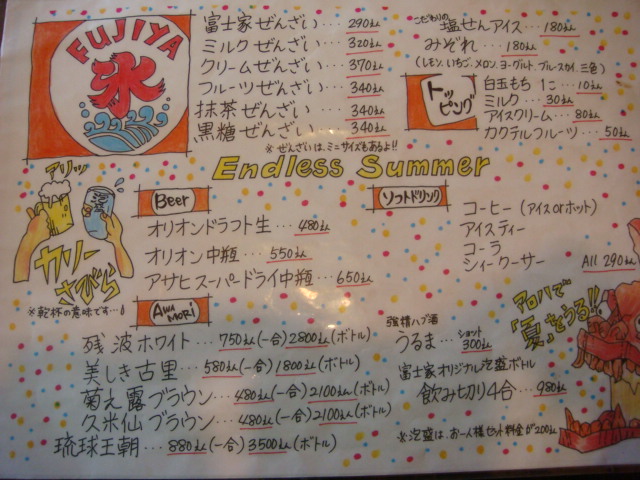 FUJIYA
氷
富士家ぜんざい…290えん
ミルクぜんざい…320えん
クリームぜんざい…370えん
フルーツぜんざい…340えん
抹茶ぜんざい…340えん
黒糖ぜんざい…340えん
※ぜんざいは、ミニサイズもあるよ!!
こだわりの塩せんアイス…180えん
みぞれ…180えん
(レモン、いちご、メロン、ヨーグルト、ブルースカイ、三色)
トッピング
白玉もち 1こ…10えん
ミルク…30えん
アイスクリーム…80えん
カクテルフルーツ…50えん
Endless Summer
アリッ
カリー
さびら
※乾杯の意味です…!
Beer
オリオンドラフト生…480えん
オリオン中瓶…550えん
アサヒスーパードライ中瓶…650えん
ソフトドリンク
コーヒー(アイス or ホット)
アイスティー
コーラ
シィークーサー All 290えん
AWAMORI
残波ホワイト…750えん(一合)2800えん(ボトル)
美しき古里…580えん(一合)1800えん(ボトル)
菊之露ブラウン…480えん(一合)2100えん(ボトル)
久米仙ブラウン…480えん(一合)2100えん(ボトル)
琉球王朝…880えん(一合)3500えん(ボトル)
強精ハブ酒
うるま…ショット300えん
富士家オリジナル泡盛ボトル
飲み切り4合…980えん
※泡盛は、お一人様セット料金が200えん
アロハで
「夏」をうる!!